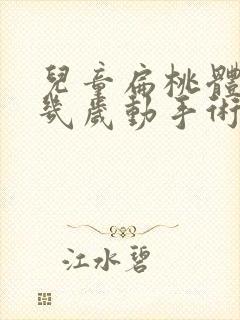 兒童扁桃體
幾歲動手術
江水碧